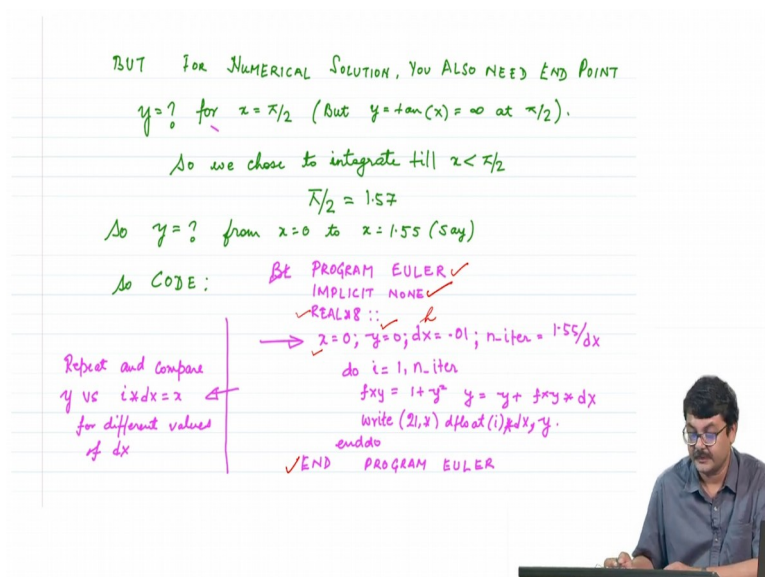 BUT FOR NUMERICAL SOLUTION, YOU ALSO NEED END POINT
y=? for x = π/2 (But y = tan(x) = ∞ at π/2).
So we chose to integrate till x < π/2
π/2 = 1.57
So y=? from x=0 to x=1.55 (say)
So CODE:
PROGRAM EULER ✓
IMPLICIT NONE ✓
✓ REAL*8 :: ✓ h
→ x=0; y=0; dx=.01; n_iter = 1.55/dx
do i=1, n_iter
fxy = 1+y² y = y + fxy * dx
write (21,*) dfloat(i)*dx, y.
enddo
✓ END PROGRAM EULER
Repeat and compare
y vs i*dx=x ←
for different values
of dx